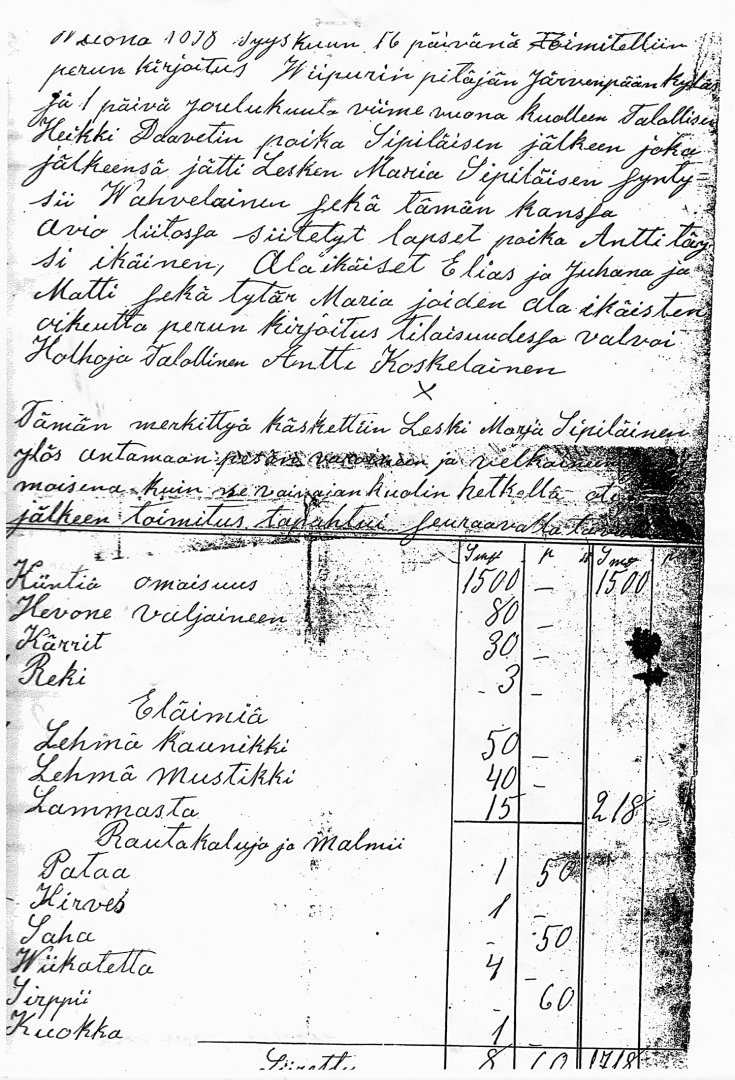 Wuona Syyskuun 16 päivänä Toimitelliin
perun kirjoitus Wiipurin pitäjän Järvenpään kyläs
jä 1 päivä joulukuuta viime vuona kuolleen Talollisen
Heikki Daavetin poika Sipiläisen jälkeen joka
jälkeensä jätti Lesken Maria Sipiläisen synty=
sii Wahvelainen sekä tämän kanssa
avio liitossa siitetyt lapset poika Antti täy
si ikäinen, Ala ikäiset Elias ja Juhana ja
Matti sekä tytär Maria joiden ala ikäisten
oikeutta perun kirjoitus tilaisuudessa valvoi
Holhoja Talollinen Antti Koskelainen
x
Tämän merkittyä käskettiin Leski Marja Sipiläinen
ylös antamaan pesän varoineen ja velkaineen
maisena kuin ne vainajan kuolin hetkellä oli
jälkeen toimitus tapahtui seuraavalla tavalla
Smk p Smk p
Kiintiä omaisuus 1500 – 1500
Hevone valjaineen 80 –
Kärrit 30 –
Reki 3 –
Eläimiä
Lehmä Kaunikki 50 –
Lehmä Mustikki 40 –
Lammasta 15 218
Rautakaluja ja Malmii
Pataa 1 50
Kirves 1 –
Saha – 50
Wiikatetta 4 –
Sirppii – 60
Kuokka 1
Siirettu 8 60 1718